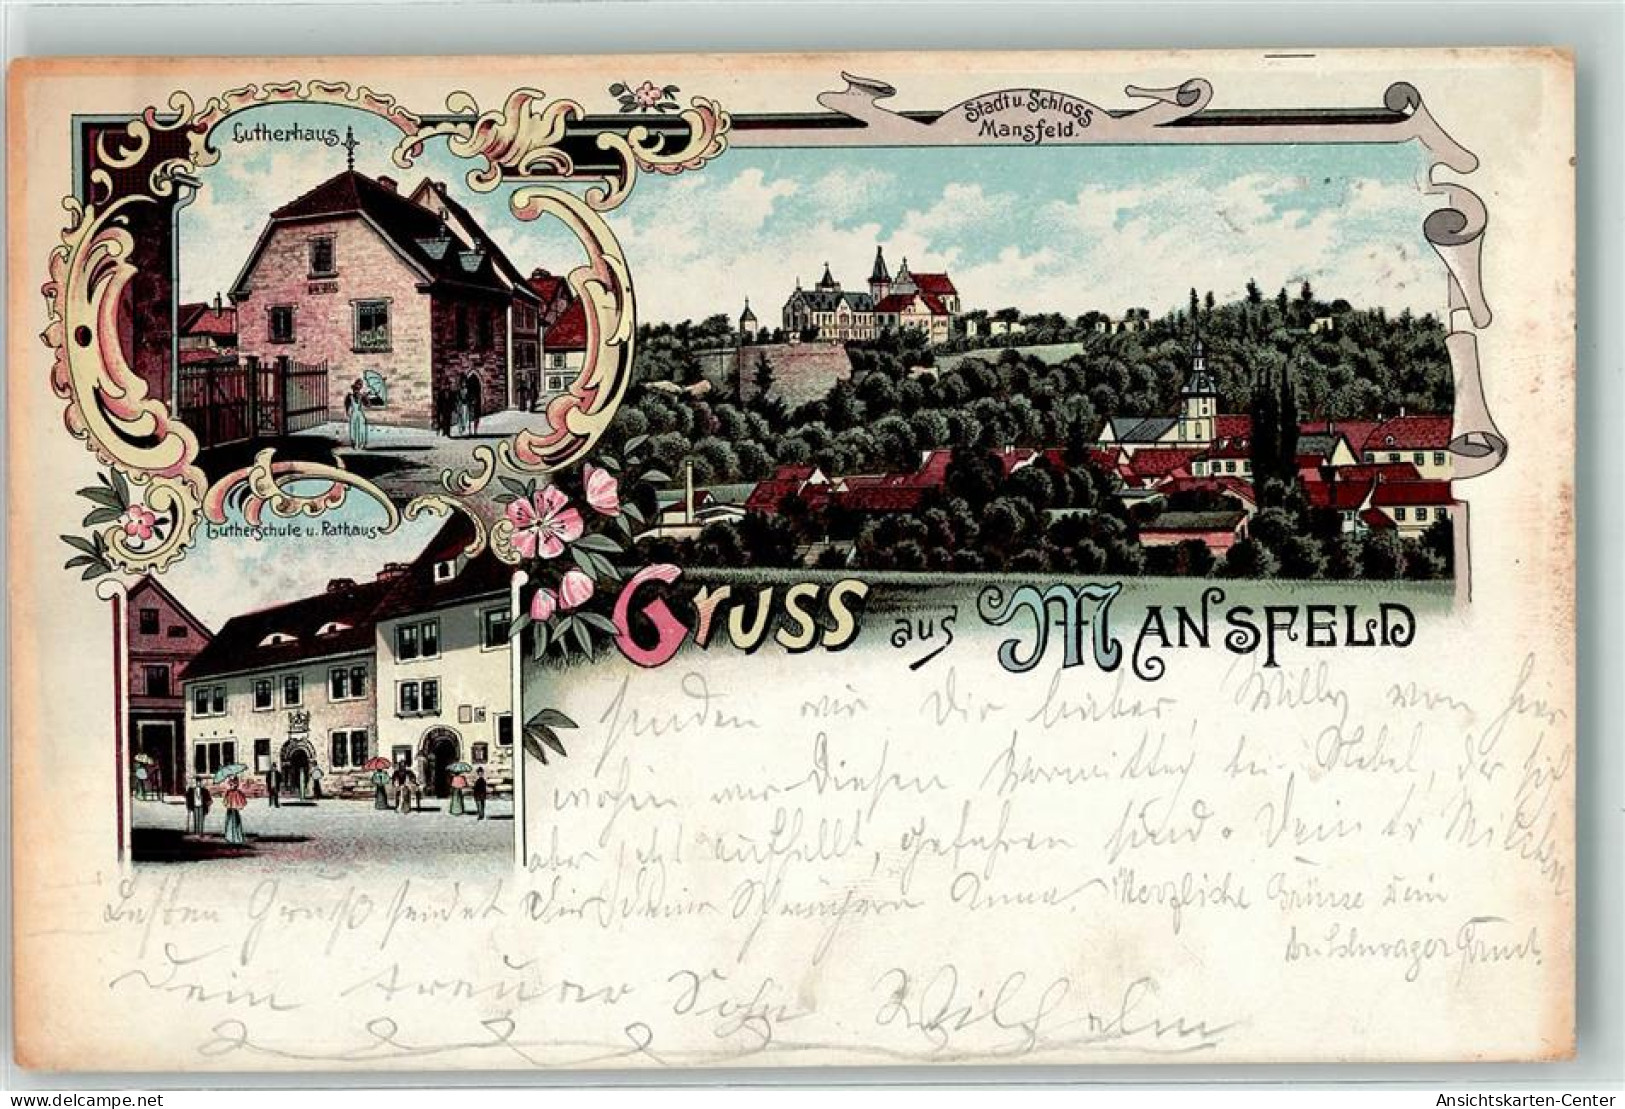 Lutherhaus
Stadt u. Schloss
Mansfeld.
Lutherschule u. Rathaus
Gruss aus Mansfeld
senden wir Dir lieber Willy von hier
wohin wir diesen Vormittag bei Nebel, der sich
aber jetzt aufhellt, gefahren sind. Dein Dr
Besten Gruß sendet Dir Deine Anna. Herzliche Grüsse Dein
Schwager Ernst.
Dein treuer Sohn Wilhelm
Ansichtskarten-Center
www.delcampe.net/de